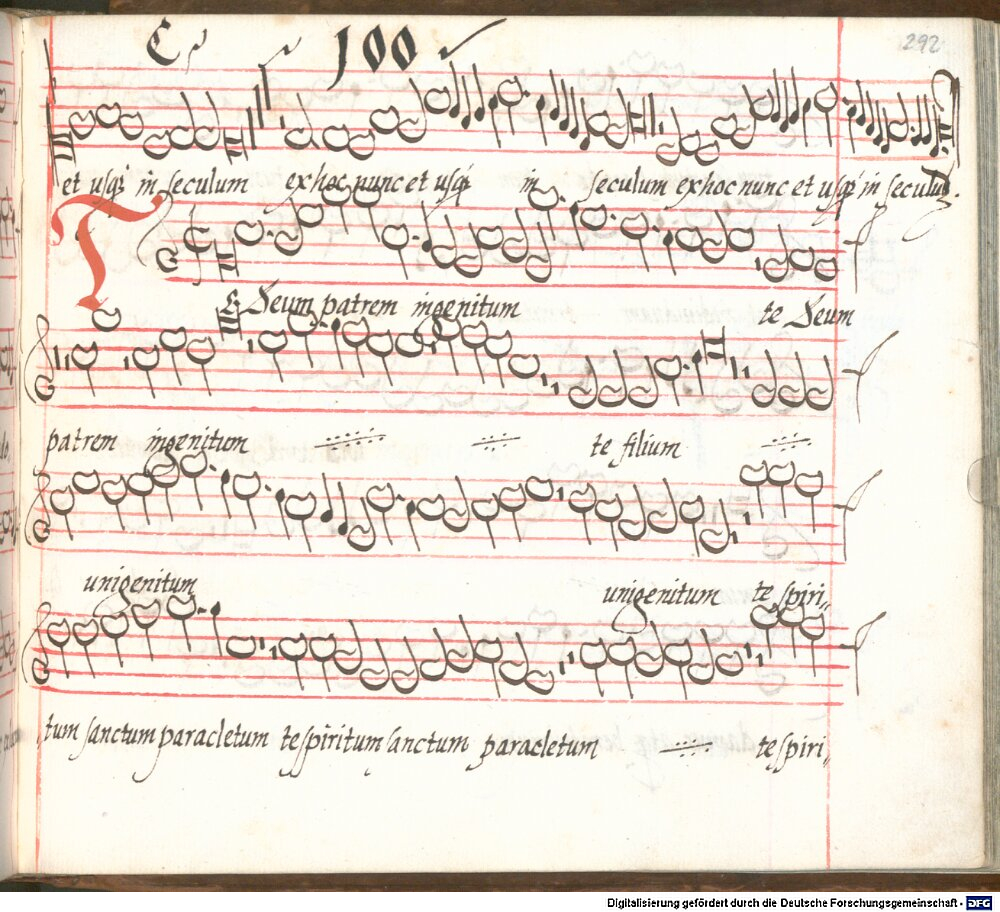 C 100 292
et usq in seculum ex hoc nunc et usq in seculum ex hoc nunc et usq in seculum.
TE Deum patrem ingenitum te Deum
patrem ingenitum te filium
unigenitum unigenitum te spiri
tum sanctum paracletum te spiritum sanctum paracletum te spiri
Digitalisierung gefördert durch die Deutsche Forschungsgemeinschaft - DFG